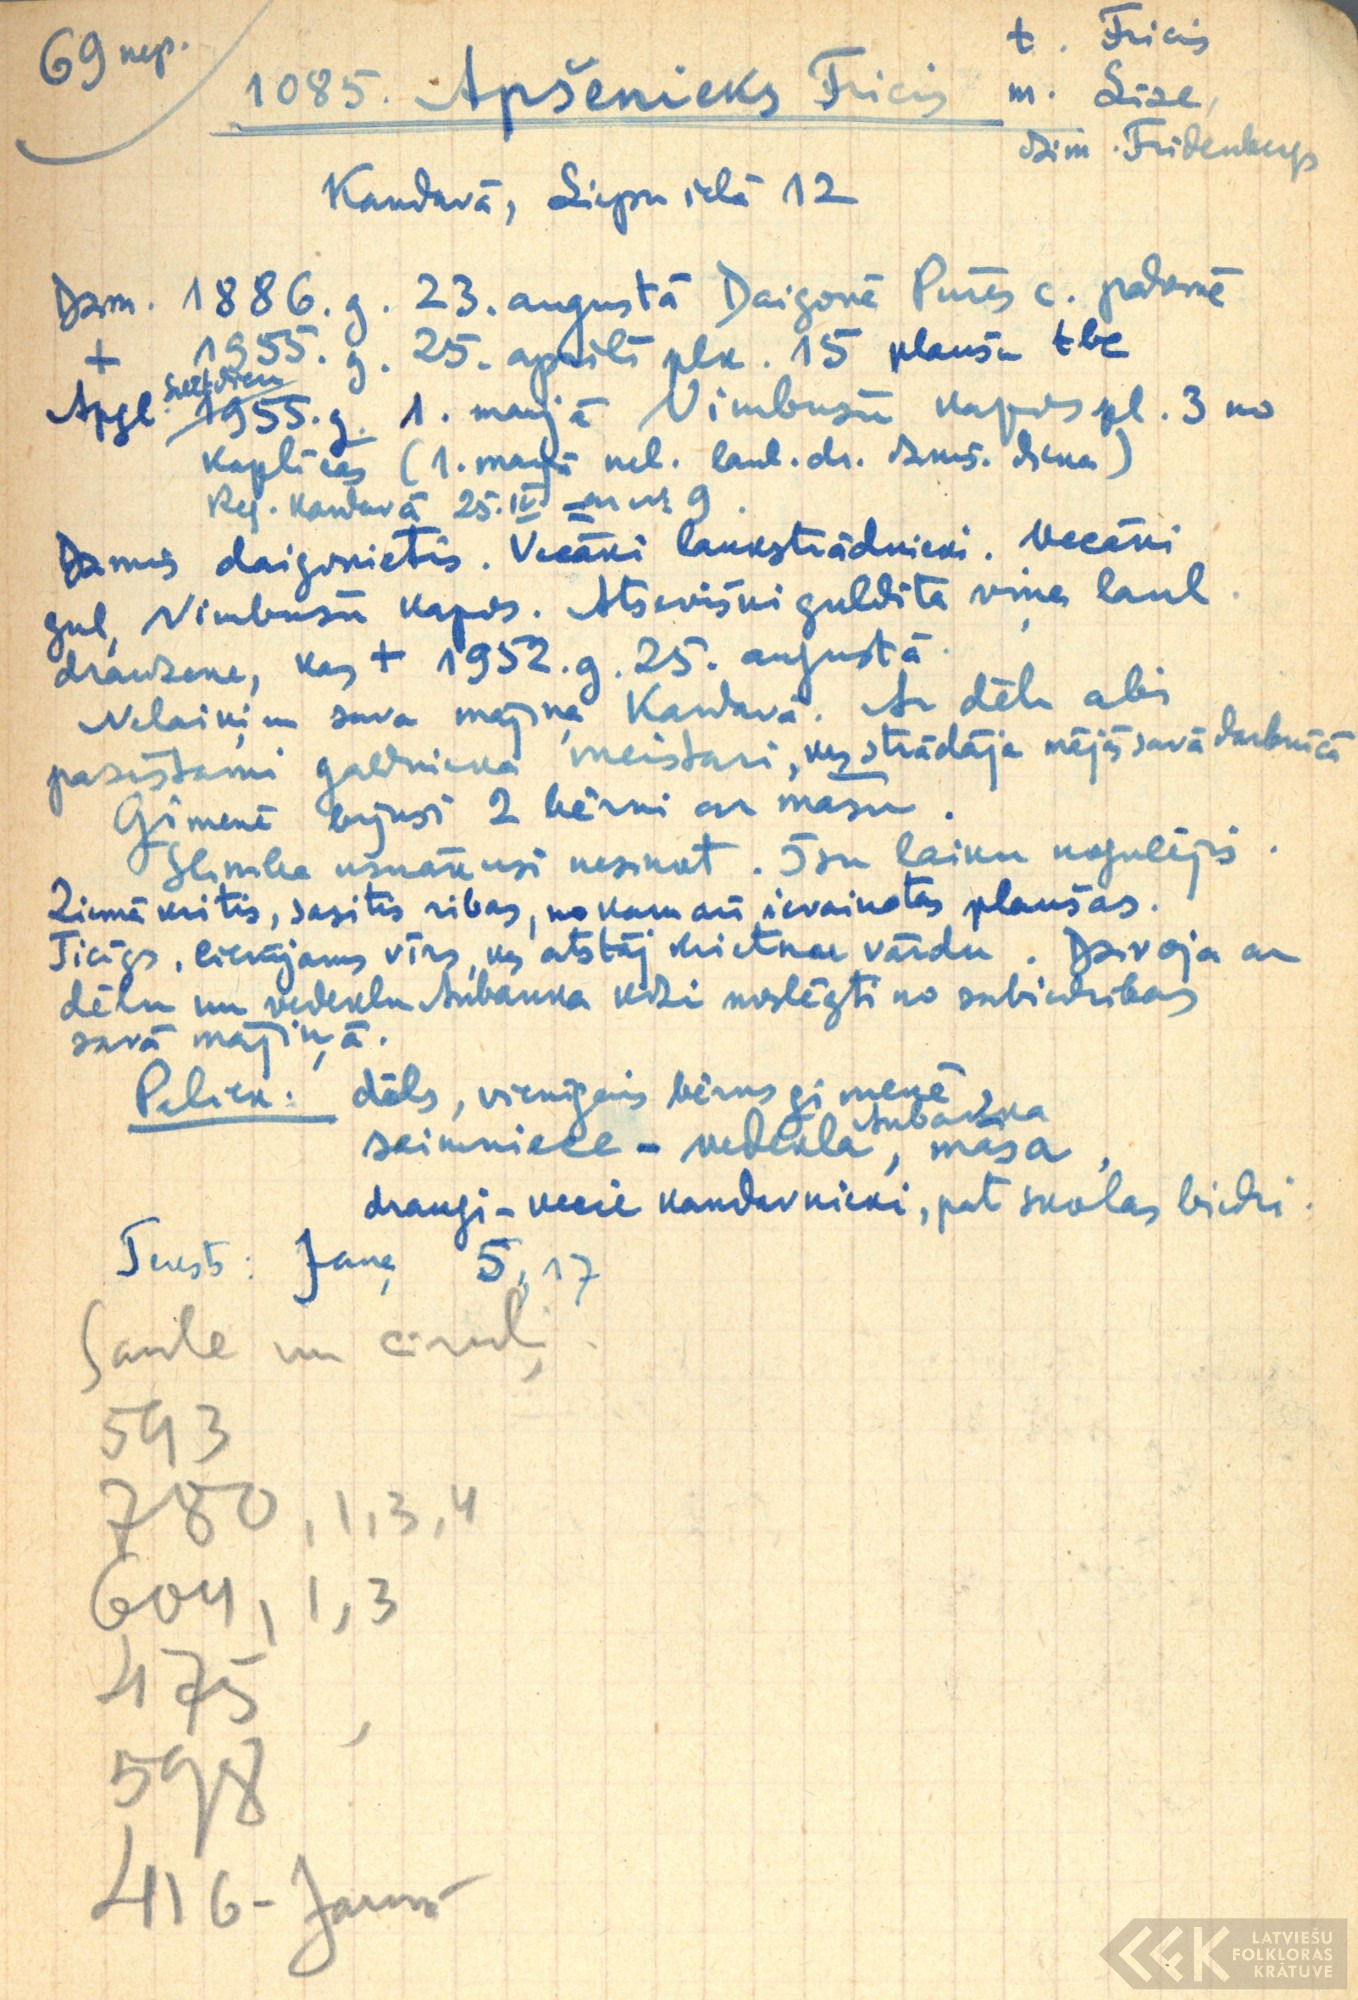 69 nep.
t. Fricis
1085. Apšenieks Fricis
m. Līze,
dzim. Fridenbergs
Kandavā, Liepu ielā 12
Dzim. 1886. g. 23. augustā Daigonē Pūres c. padomē
+ 1955. g. 25. aprīlī plk. 15 plaušu tbc
Svētdien
Apgl. 1955. g. 1. maijā Vimbušu kapos pl. 3 no
kapličas (1. maijā nel. laul. dr. dzimš. diena)
Reģ. Kandavā 25. IV ar nr 9.
Dzimis daigonietis. Vecāki laukstrādnieki. Vecāki
guļ Vimbušu kapos. Atsevišķi guldīta viņa laul.
draudzene, kas + 1952. g. 25. augustā.
Nelaiķim sava mājiņa Kandavā. Ar dēlu abi
pazīstami galdnieka meistari, kas strādāja mājās savā darbnīcā
Ģimenē bijuši 2 bērni ar māsu.
Slimība uznākusi nezinot. Īsu laiku nogulējis.
Ziemā kritis, sasitis ribas, no kam arī ievainotas plaušas.
Ticīgs, cienījams vīrs, kas atstāj krietnu vārdu. Dzīvoja ar
dēlu un vedeklu Aubanka kdzi noslēgti no sabiedrības
savā mājiņā.
Paliek: dēls, vienīgais bērns ģimenē
Aubanka
saimniece - vedekla, māsa,
draugi - vecie kandavnieki, pat skolas biedri.
Teksts: Jāņa 5, 17
Saule un cīruļi.
593
780, 1, 3, 4
604, 1, 3
475
598
416 -
LATVIEŠU
FOLKLORAS
KRĀTUVE